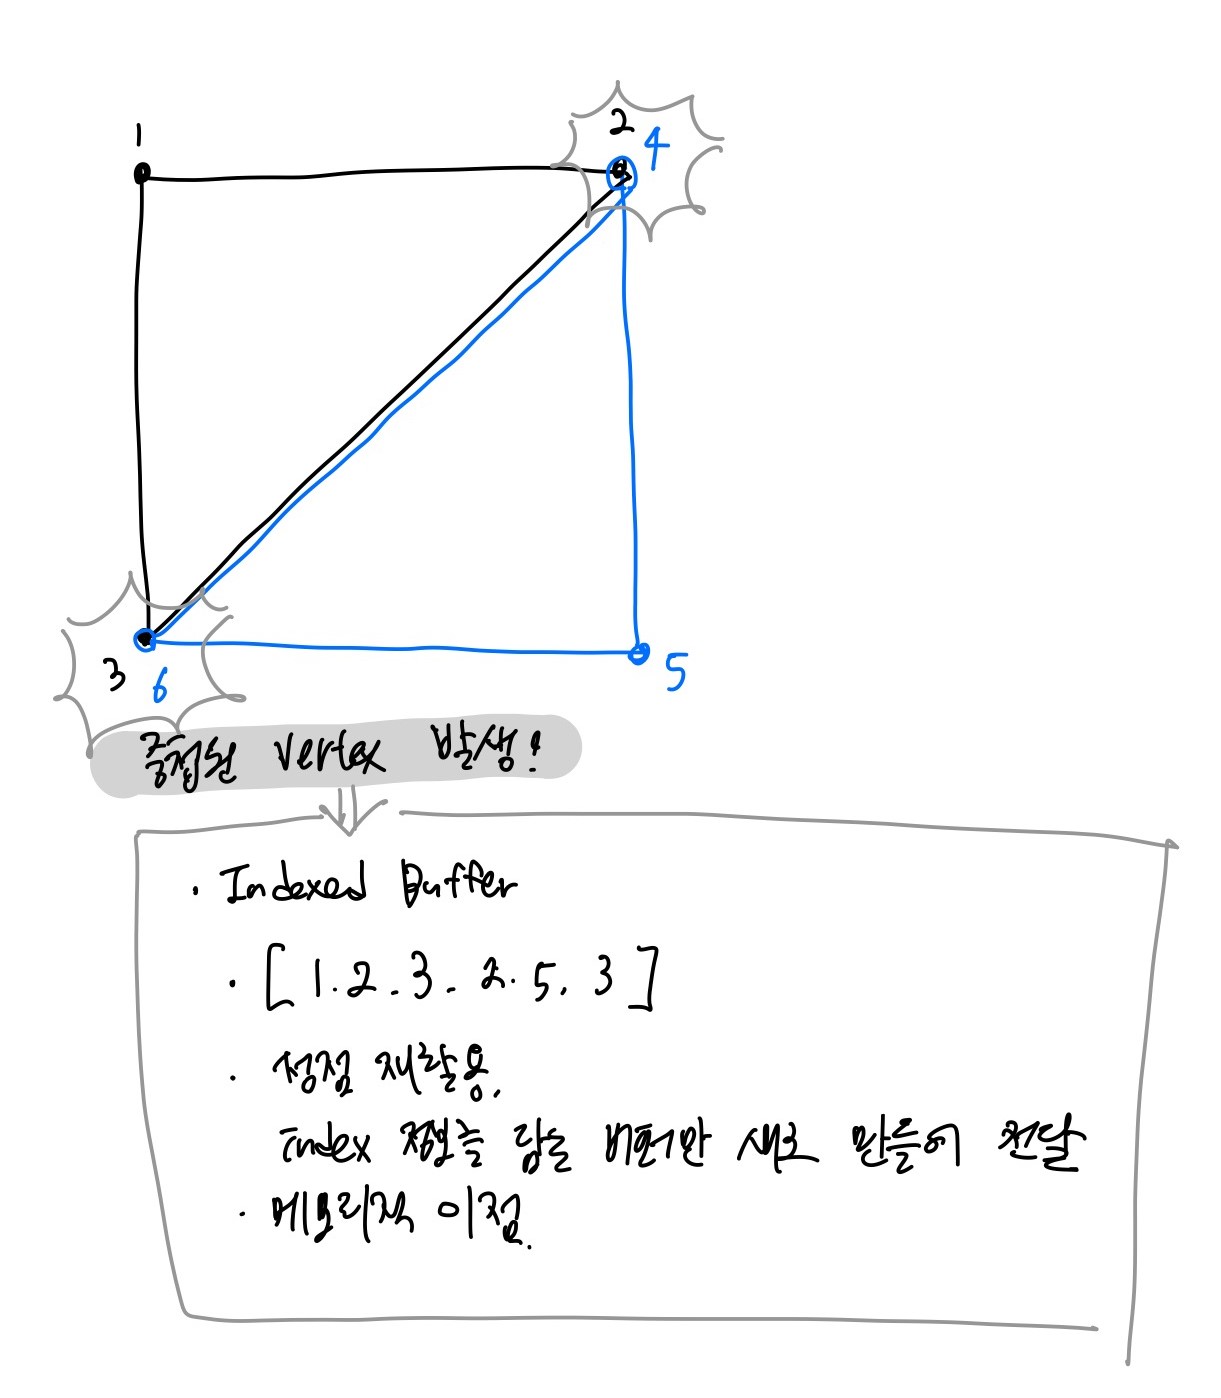 1
2 4
3 6
5
중첩된 Vertex 발생!
· Indexed Buffer
· [ 1. 2. 3. 2. 5. 3 ]
· 정점 재활용.
index 정보를 담는 버퍼만 새로 만들어 전달
· 메모리적 이점.